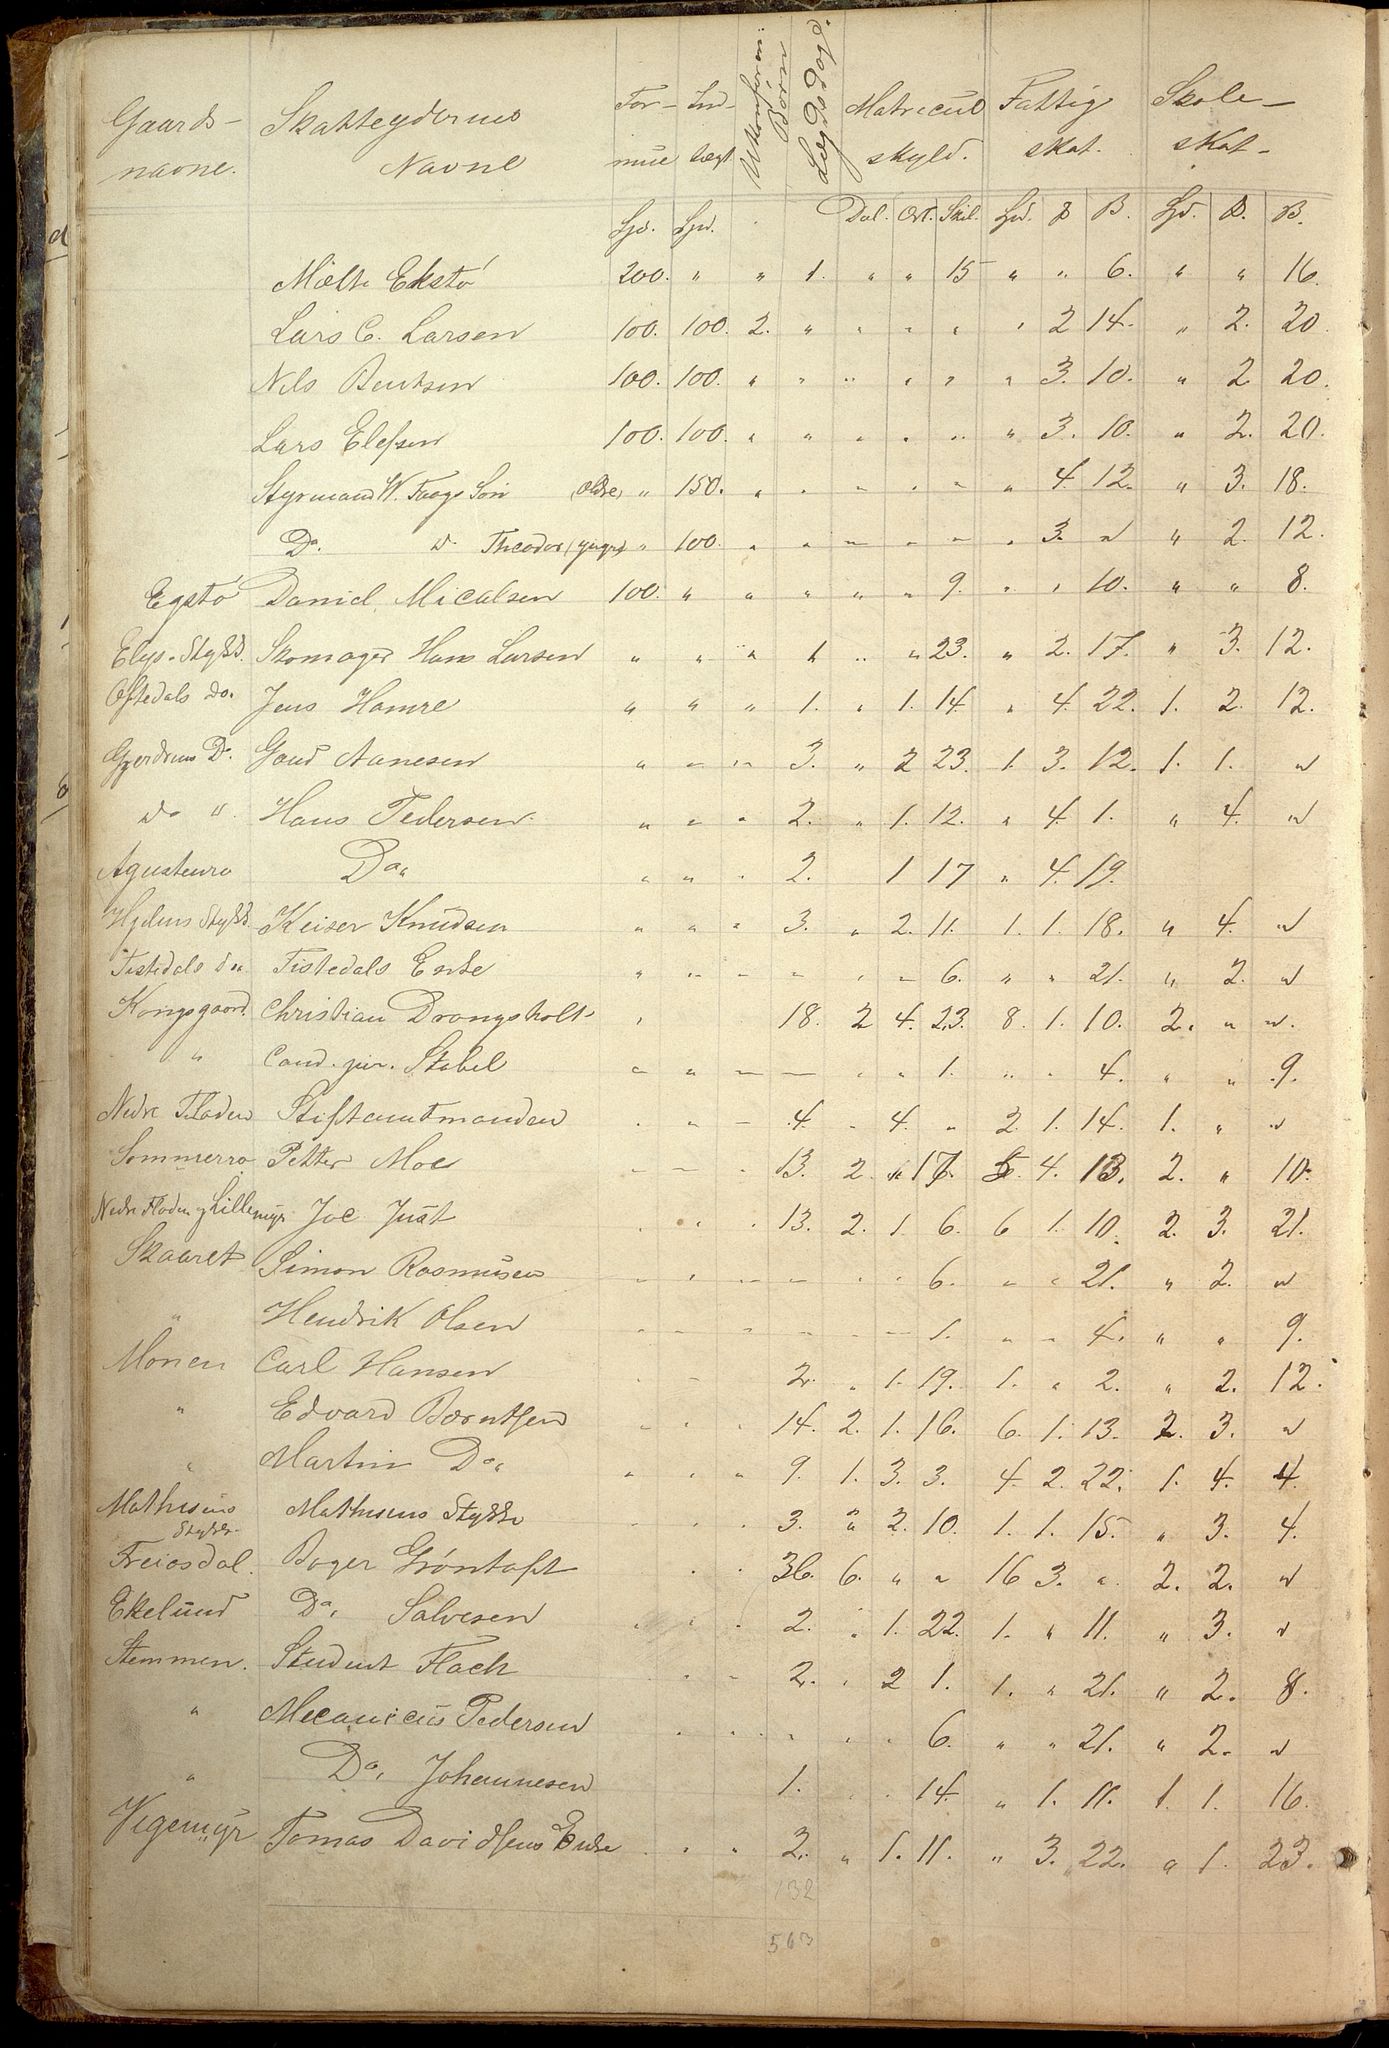 Gaards- Skatteydernes For- Ind- Børn Lægdsdagd. Matricul Fattig Skole-
navne. Navne mue tægt skyld. skat. skat-
Spd. Spd. Dal. Ort. Skil. Spd. B. Spd. B.
Mælte Ekstø 200. " " 1. " " 15 " " 6. " " 16.
Lars C. Larsen 100. 100. 2. " " " " " 2 14. " 2. 20
Nils Bentsen 100. 100. " " " " " " 3. 10. " 2 20.
Lars Elefsen 100. 100. " " " " " " 3. 10. " 2. 20.
Styrmand W. Faags Søn (Ældre) " 150. " " " " " " 4 12. " 3. 18.
Do. " Theodor (yngre) " 100. " " " " " " 3. " " 2. 12.
Egstø Daniel Micalsen 100. " " " " " 9. " " 10. " " 8.
Skomager Hans Larsen " " " 1 " " 23. " 2. 17. " 3. 12.
Oftedals do. Jens Hamre " " " 1. " 1. 14. " 4. 22. 1. 2. 12.
Gjerdrums Do. Gaud Aanesen " " " 3. " 2 23. 1. 3. 12. 1. 1. "
do " Hans Pedersen " " " 2. " 1. 12. " 4. 1. " 4. "
Do. " " " 2. 1 17 " 4. 19.
Stykk. Keiser Knudsen " " " 3. " 2. 11. 1. 1. 18. " 4. "
Tistedals do. Tistedals Enke " " " " " " 6. " " 21. " 2. "
Kongsgaard. Christian Drangsholt " 18. 2 4. 23. 8. 1. 10. 2. " "
" Cand. jur. Stabel " " " " " " 1. " " 4. " " 9.
Nedre Floden Stiftamtmanden " " " 4. " 4. " 2. 1. 14. 1. " "
Sommerro Petter Moe " " " 13. 2. " 17. 5. 4. 13. 2. " 10.
Nedre Floden og Lillemyr Joc Just " " " 13. 2. 1. 6. 6 1. 10. 2. 3. 21.
Skaaret Simon Rasmusen " " " " " " 6. " " 21. " 2. "
" Hendrik Olsen " " " " " " 1. " " 4. " " 9.
Monen Carl Hansen " " 2. " 1. 19. 1. " 2. " 2. 12.
" Edvard Børntsen " " " 14. 2. 1. 16. 6. 1. 13. 2. 3. "
" Martin Do. " " " 9. 1. 3. 3. 4. 2. 22. 1. 4. 4.
Mathisens Mathisens Stykke " " " 3. " 2. 10. 1. 1. 15. " 3. 4.
Stykke
Freiosdal. Boger Grøntoft " " 36. 6. " " 16 3. " 2. 2. "
Ekelund Do. Salvesen " " " 2. " 1. 22. 1. " 11. " 3. "
Stemmen. Student Flach " " " 2. " 2 1. 1. " 21. " 2. 8.
" Mecanicus Pedersen " " " " " " 6. " " 21. " 2. "
" Do. Johannesen 1. " " 14. " 1. 11. 1. 1. 16.
Vigemyr Tomas Davidsens Enke " " " 2. " 1. 11. " 3. 22. " 1. 23.
132
563